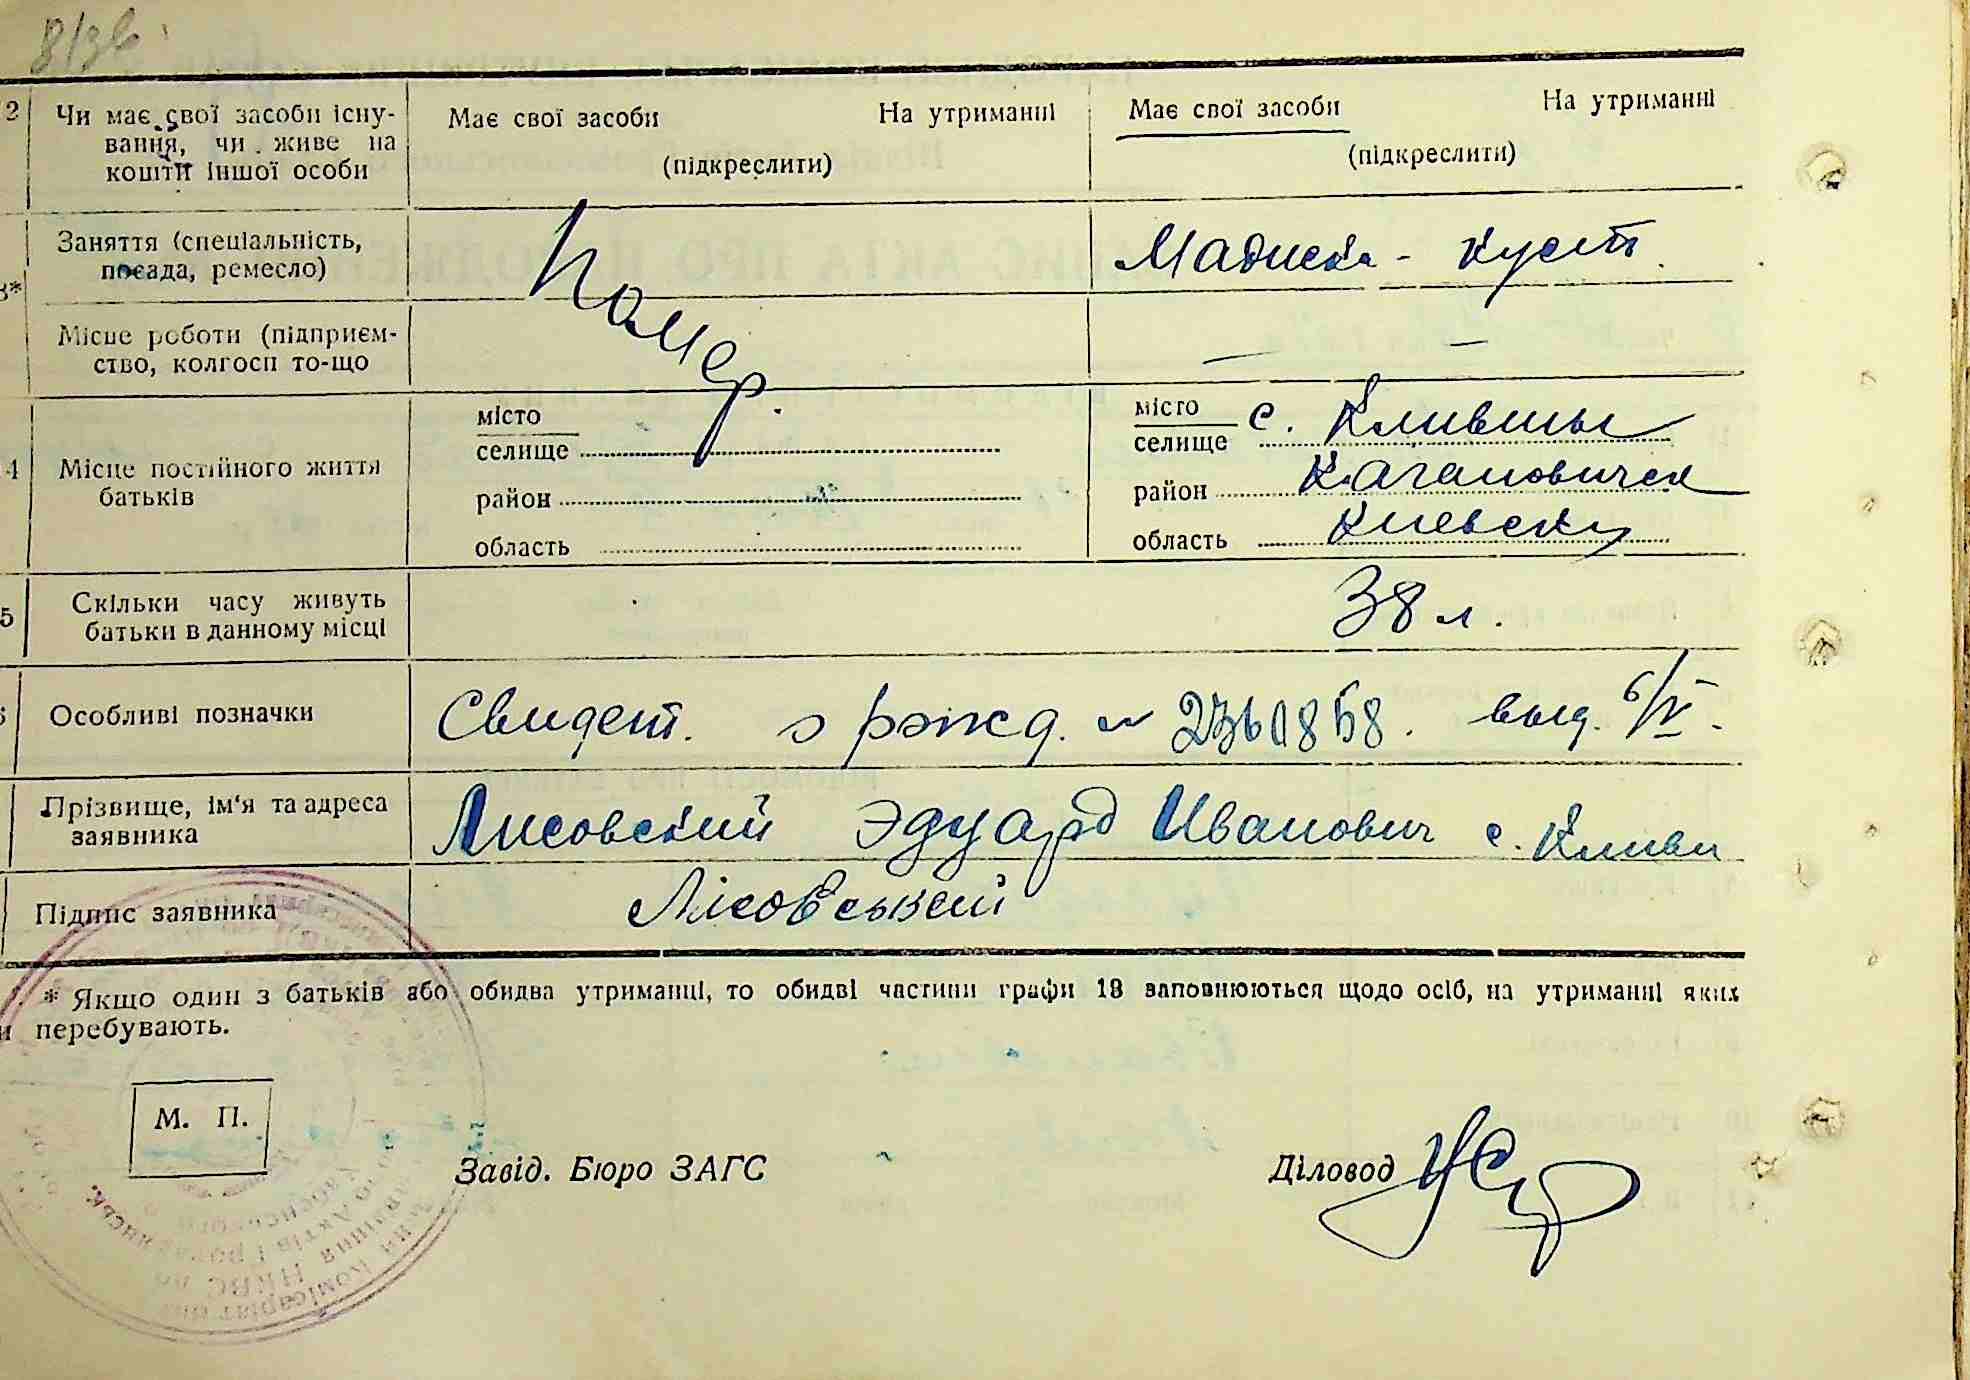 8/зв
2 Чи має свої засоби існу- Має свої засоби На утриманні Має свої засоби На утриманні
вання, чи живе на (підкреслити) (підкреслити)
кошти іншої особи
3* Заняття (спеціальність, Помер. куст.
посада, ремесло)
Місце роботи (підприєм- — —
ство, колгосп то-що
4 Місце постійного життя
батьків
місто
селище
район
область
місто
селище с. Кливины
район Кагановическ
область Киевск
5 Скільки часу живуть 38 л.
батьки в данному місці
6 Особливі позначки Свидет. о рожд. № выд. 6/IV.
Прізвище, ім'я та адреса Лисовский Эдуард Иванович с. Кливи
заявника
Підпис заявника Лісовський
* Якщо один з батьків або обидва утриманці, то обидві частини графи 13 заповнюються щодо осіб, на утриманні яких
и перебувають.
М. П.
Завід. Бюро ЗАГС Діловод